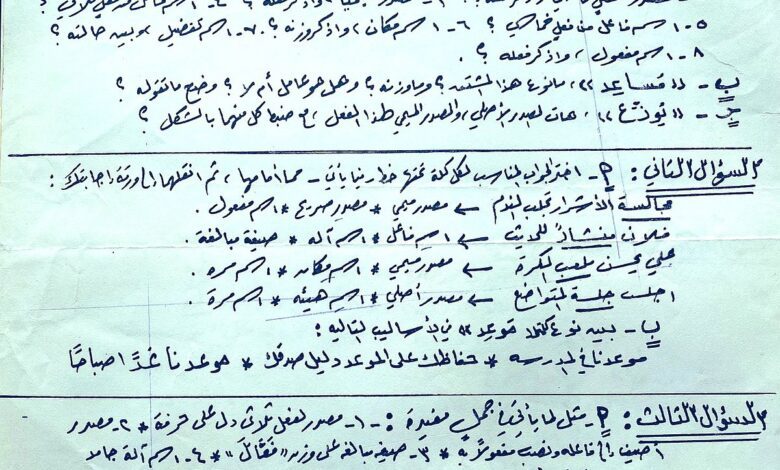 ٥- اسم فاعل من فعل خماسي ؟ ٦- اسم مكان، واذكر وزنه ؟ ٧- اسم تفضيل، وبين حالته ؟
٨- اسم مفعول، واذكر فعله ؟.
ب- (( مساعد ))، ما نوع هذا المشتق ؟ وما وزنه ؟ وهل هو عامل أم لا ؟ وضح ما تقوله ؟
ج- (( توزع ))، هات المصدر الأصلي، والمصدر الميمي لهذا الفعل، مع ضبط كل منهما بالشكل ؟
السؤال الثاني : أ- اختر الجواب المناسب لكل كلمة تحتها خط فيما يأتي - مما أمامها، ثم انقلها إلى ورقة إجابتك :
مجالسة الأشرار تجلب الندم ← مصدر ميمي * مصدر صريح * اسم مفعول .
فلان منشاد للحديث ← اسم فاعل * اسم آله * صيغة مبالغة .
علي يحسن ملعب الكرة ← مصدر ميمي * اسم مكان * اسم مره .
اجلس جلسة المتواضع ← مصدر أصلي * اسم هيئه * اسم مرة .
ب- بين نوع كلمة (( موعد )) في الأساليب التاليه :
موعدنا في المدرسه * حفاظك على الموعد دليل صدقك * موعدنا غدًا صباحًا
السؤال الثالث : أ- مثل لما يأتي في جمل مفيدة :- ١- مصدر لفعل ثلاثي دل على حرفة * ٢- مصدر
أضيف إلى فاعله ونصب مفعولًا به * ٣- صيغة مبالغه على وزن " فَعَّال " * ٤- اسم آلة جامد